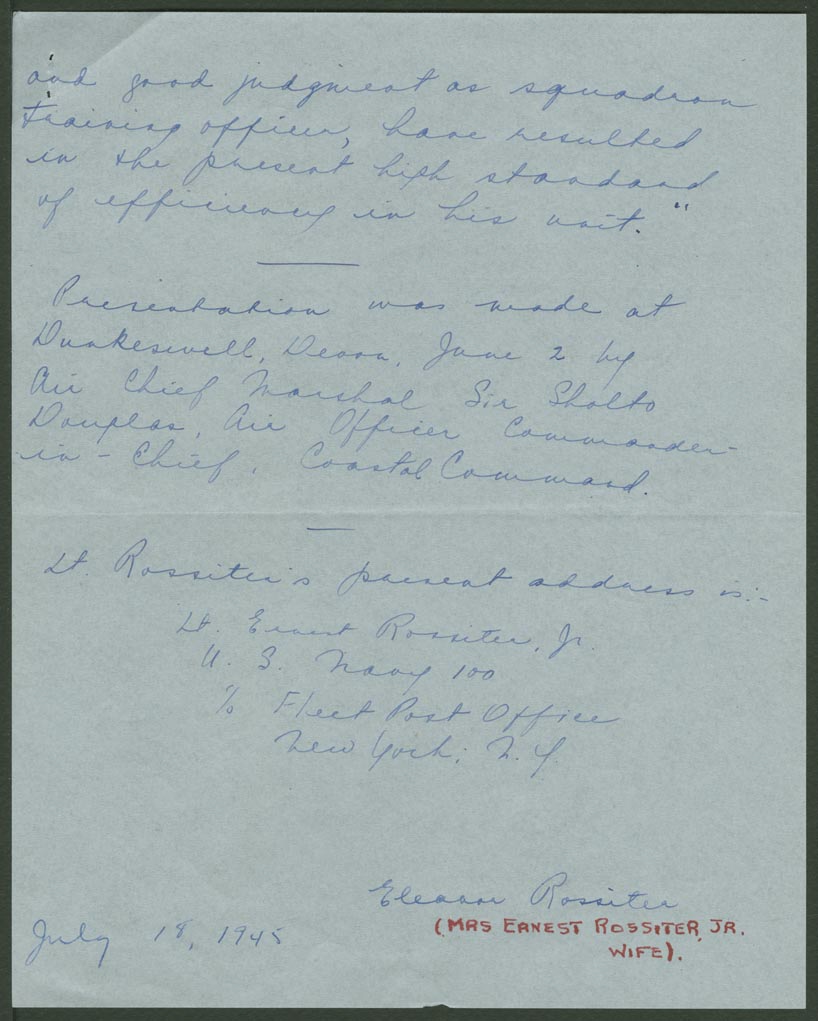 and good judgment as squadron
training officer, have resulted
in the present high standard
of efficiency in his unit."
Presentation was made at
Dunkeswell, Devon, June 2 by
Air Chief Marshal Sir Sholto
Douglas, Air Officer Commander-
in-Chief, Coastal Command.
Lt. Rossiter's present address is:-
Lt. Ernest Rossiter, Jr.
U. S. Navy 100
% Fleet Post Office
New York, N.Y.
Eleanor Rossiter
(MRS ERNEST ROSSITER, JR.
WIFE).
July 18, 1945